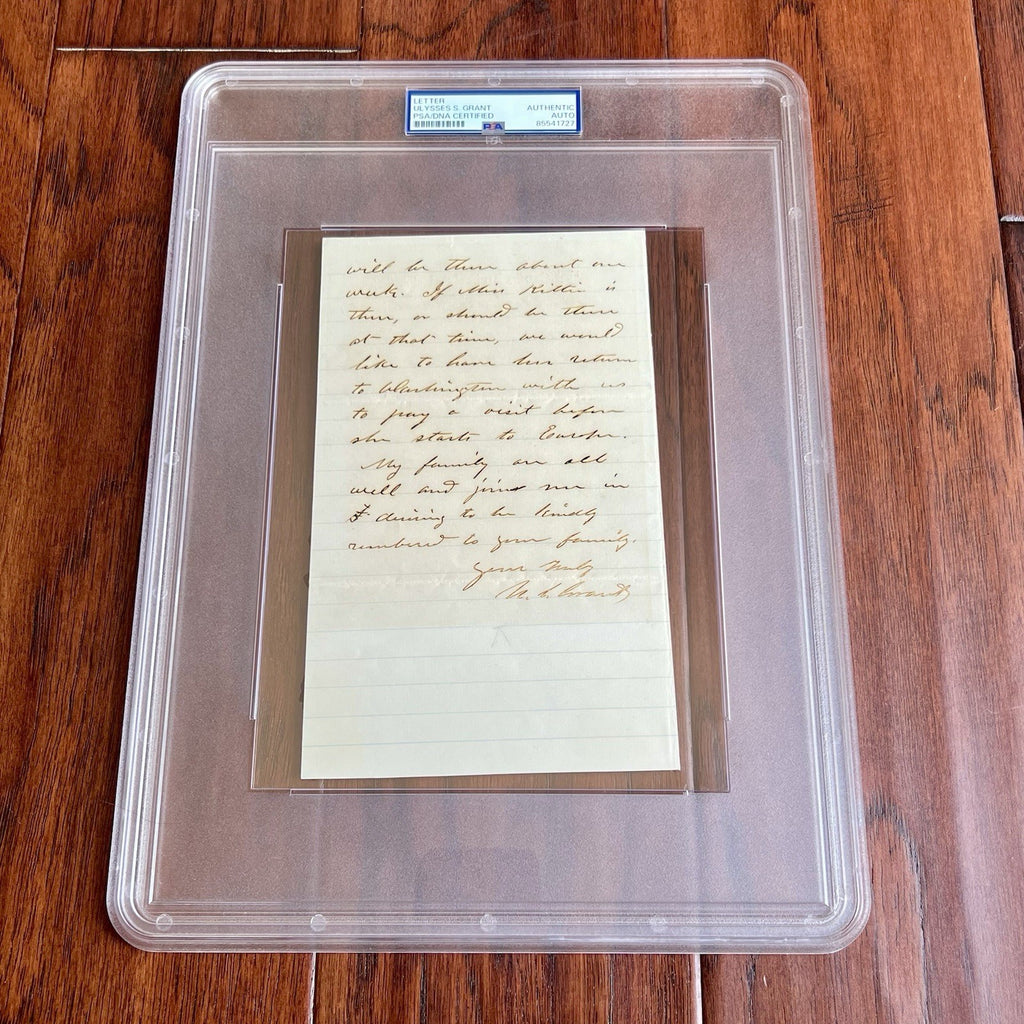 LETTER
ULYSSES S. GRANT
PSA/DNA CERTIFIED
AUTHENTIC
AUTO
85541727
PSA
will be there about one
week. If Miss Kittie is
there, or should be there
at that time, we would
like to have her return
to Washington with us
to pay a visit before
she starts to Europe.
My family are all
well and join me in
desiring to be kindly
rembered to your family.
Yours Truly
U. S. Grant